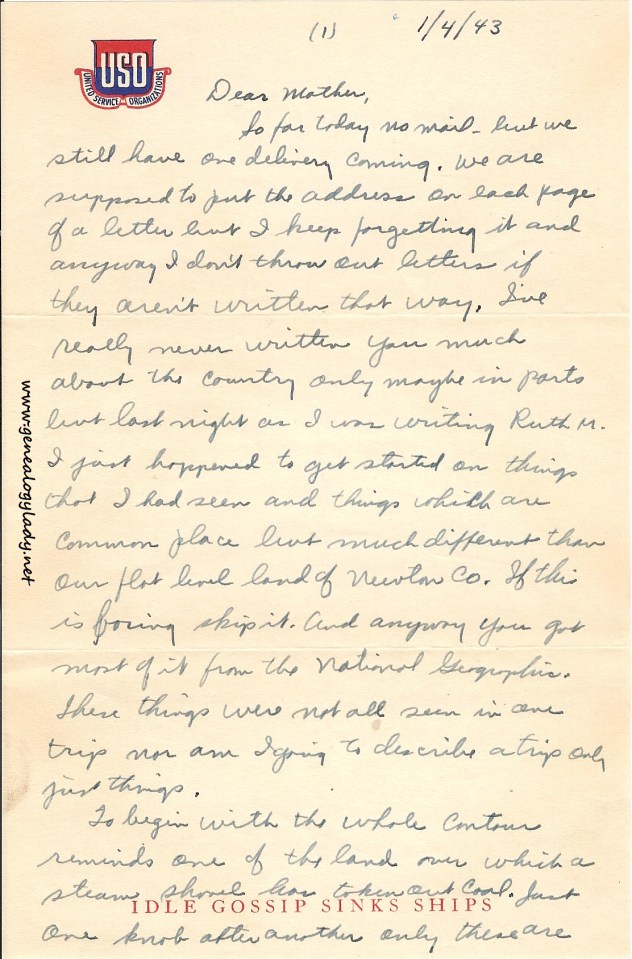 (1) 1/4/43
USO
UNITED SERVICE ORGANIZATIONS
Dear Mother,
So far today no mail - but we
still have one delivery coming. We are
supposed to put the address on each page
of a letter but I keep forgetting it and
anyway I don't throw out letters if
they aren't written that way. I've
really never written you much
about the country only maybe in parts
but last night as I was writing Ruth M.
I just happened to get started on things
that I had seen and things which are
common place but much different than
our flat level land of Newton Co. If this
is boring skip it. And anyway you got
most of it from the National Geographic.
These things were not all seen in one
trip nor am I going to describe a trip only
just things.
To begin with the whole contour
reminds one of the land over which a
steam shovel has taken out coal. Just
IDLE GOSSIP SINKS SHIPS
one knob after another only these are
www.genealogylady.net